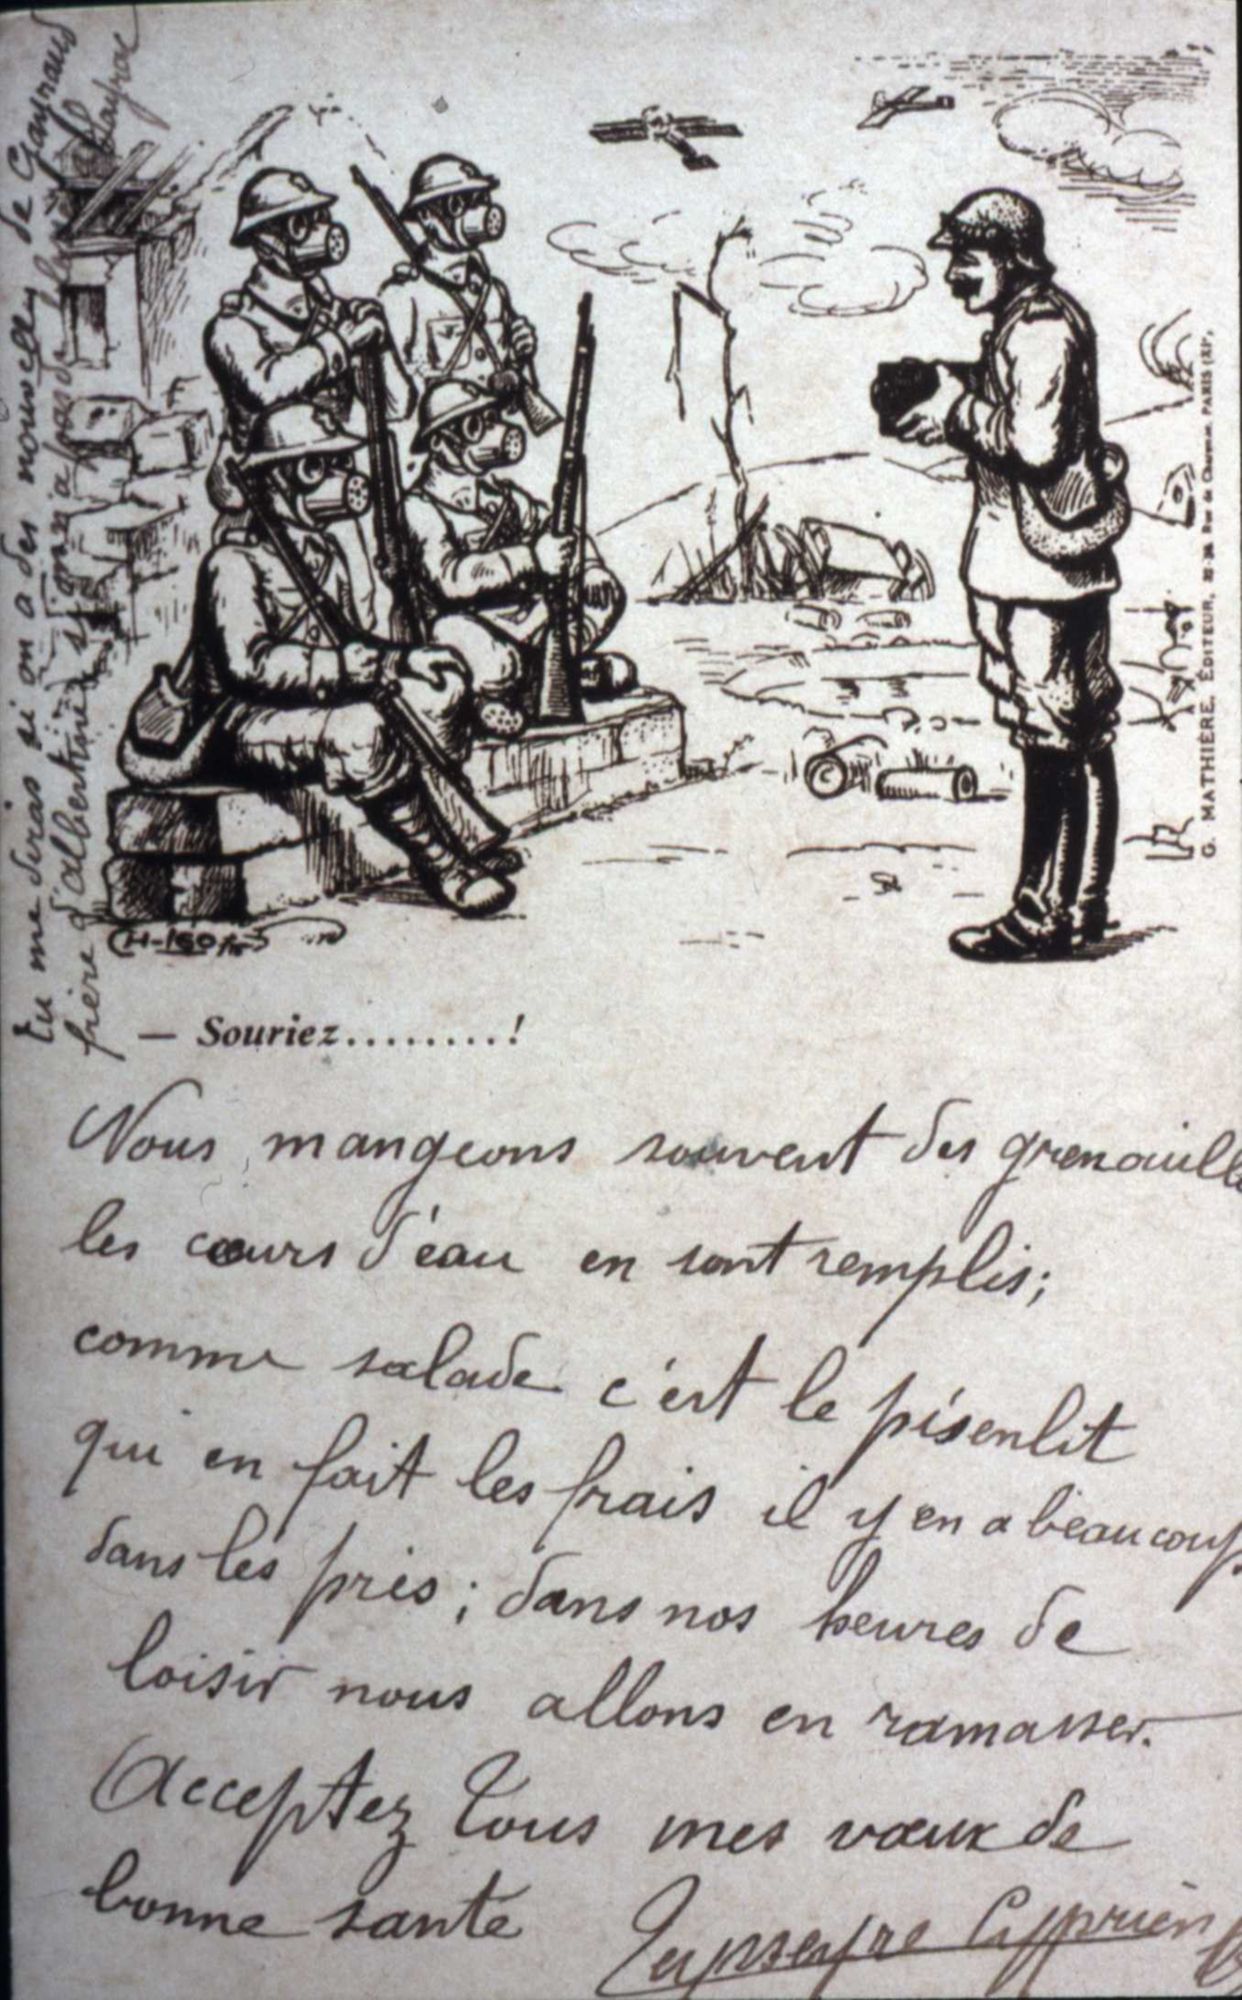 Tu me diras si on a des nouvelles de Gayraud
frère d'albertine si on n'a pas de
— Souriez.........!
G. MATHIÈRE, ÉDITEUR, Rue de Charonne, PARIS (XIᵉ),
Nous mangeons souvent des grenouille
les cœurs d'éau en sont remplis;
comme salade c'est le pisenlit
qui en fait les frais il y en a beaucoup
dans les prés; dans nos heures de
loisir nous allons en ramasser.
Acceptez tous mes vœux de
bonne sante
Cyprien